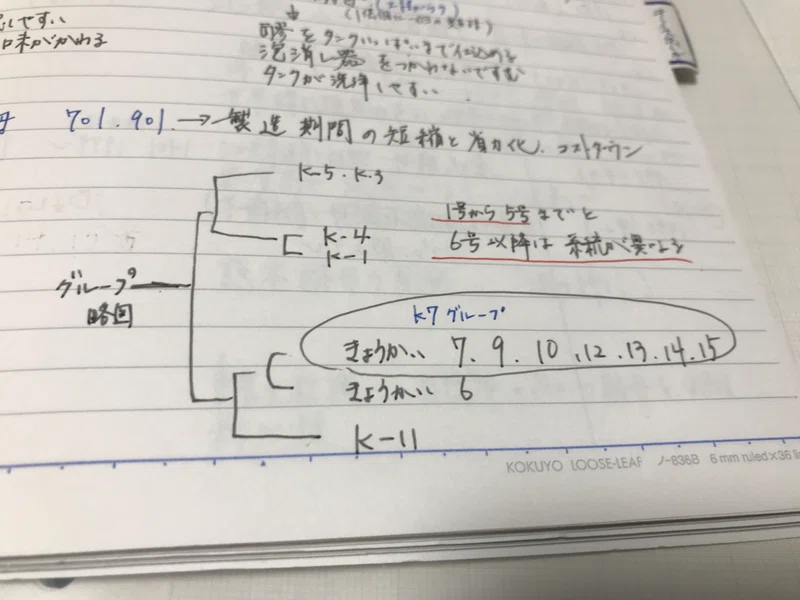 しせすい
味がかわる
醪をタンクいっぱいまで仕込める
泡消し器をつかわないですむ
タンクが洗浄しせすい
701.901.→製造期間の短縮と省力化.コストダウン
K-5.K-3
1号から5号までと
K-4
6号以降は系統が異なる
K-1
グループ
略図
K7グループ
きょうかい 7.9.10.12.13.14.15
きょうかい 6
K-11
KOKUYO LOOSE-LEAF ノ-836B 6mm ruled×36